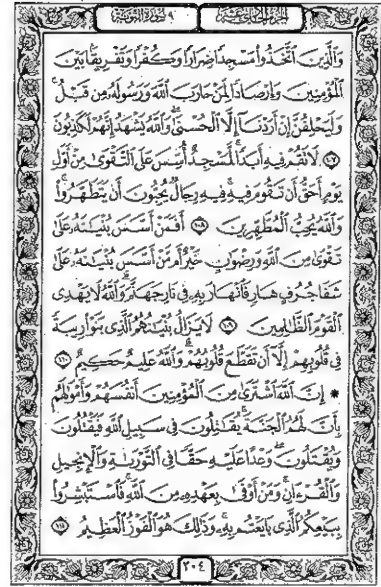 الجزء الحادي عشر
٩ سورة التوبة
وَالَّذِينَ اتَّخَذُوا مَسْجِدًا ضِرَارًا وَكُفْرًا وَتَفْرِيقًا بَيْنَ
الْمُؤْمِنِينَ وَإِرْصَادًا لِّمَنْ حَارَبَ اللَّهَ وَرَسُولَهُ مِن قَبْلُ ۚ
وَلَيَحْلِفُنَّ إِنْ أَرَدْنَا إِلَّا الْحُسْنَىٰ ۖ وَاللَّهُ يَشْهَدُ إِنَّهُمْ لَكَاذِبُونَ
١٠٧ لَا تَقُمْ فِيهِ أَبَدًا ۚ لَّمَسْجِدٌ أُسِّسَ عَلَى التَّقْوَىٰ مِنْ أَوَّلِ
يَوْمٍ أَحَقُّ أَن تَقُومَ فِيهِ ۚ فِيهِ رِجَالٌ يُحِبُّونَ أَن يَتَطَهَّرُوا ۚ
وَاللَّهُ يُحِبُّ الْمُطَّهِّرِينَ ١٠٨ أَفَمَنْ أَسَّسَ بُنْيَـٰنَهُ عَلَىٰ
تَقْوَىٰ مِنَ اللَّهِ وَرِضْوَانٍ خَيْرٌ أَم مَّنْ أَسَّسَ بُنْيَـٰنَهُ عَلَىٰ
شَفَا جُرُفٍ هَارٍ فَانْهَارَ بِهِ فِي نَارِ جَهَنَّمَ ۗ وَاللَّهُ لَا يَهْدِي
الْقَوْمَ الظَّـٰلِمِينَ ١٠٩ لَا يَزَالُ بُنْيَـٰنُهُمُ الَّذِي بَنَوْا رِيبَةً
فِي قُلُوبِهِمْ إِلَّا أَن تَقَطَّعَ قُلُوبُهُمْ ۗ وَاللَّهُ عَلِيمٌ حَكِيمٌ ١١٠
* إِنَّ اللَّهَ اشْتَرَىٰ مِنَ الْمُؤْمِنِينَ أَنفُسَهُمْ وَأَمْوَٰلَهُم
بِأَنَّ لَهُمُ الْجَنَّةَ ۚ يُقَـٰتِلُونَ فِي سَبِيلِ اللَّهِ فَيَقْتُلُونَ
وَيُقْتَلُونَ ۖ وَعْدًا عَلَيْهِ حَقًّا فِي التَّوْرَىٰةِ وَالْإِنجِيلِ
وَالْقُرْءَانِ ۚ وَمَنْ أَوْفَىٰ بِعَهْدِهِ مِنَ اللَّهِ ۚ فَاسْتَبْشِرُوا
بِبَيْعِكُمُ الَّذِي بَايَعْتُم بِهِ ۚ وَذَٰلِكَ هُوَ الْفَوْزُ الْعَظِيمُ ١١١
٢٠٤